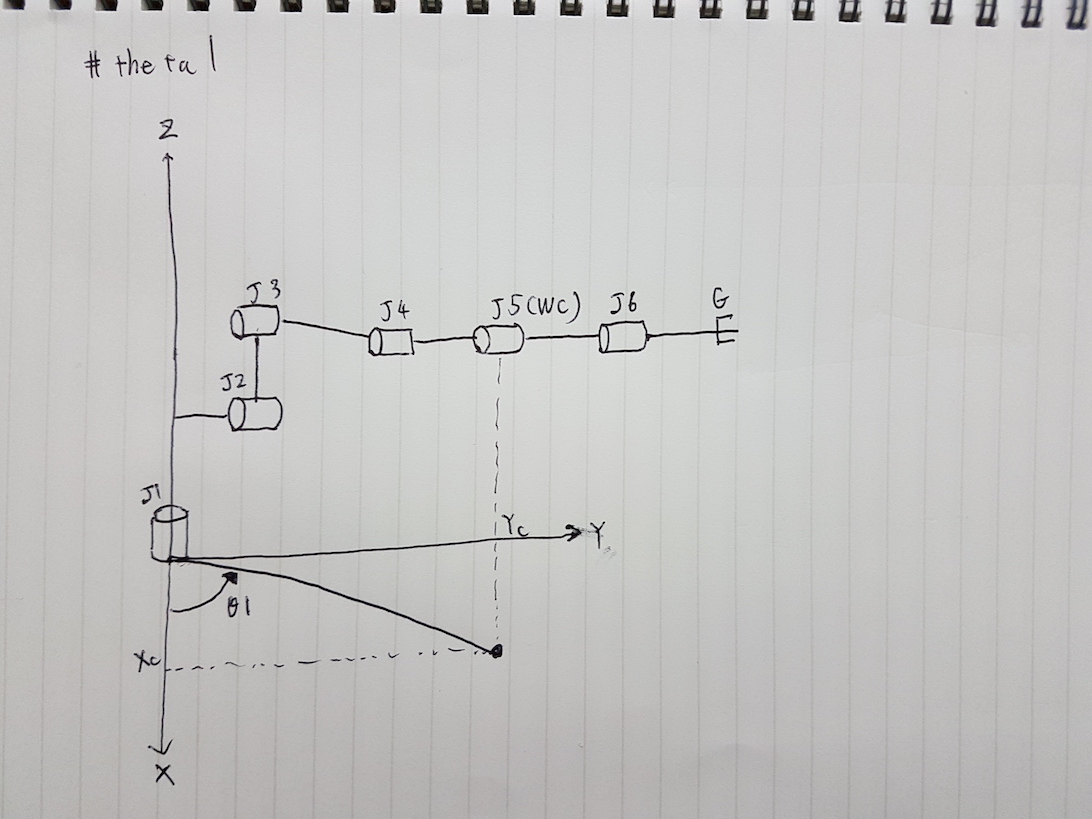 # theta 1
Z
J3
J4
J5(WC)
J6
G
J2
J1
Yc
Y
θ1
Xc
X